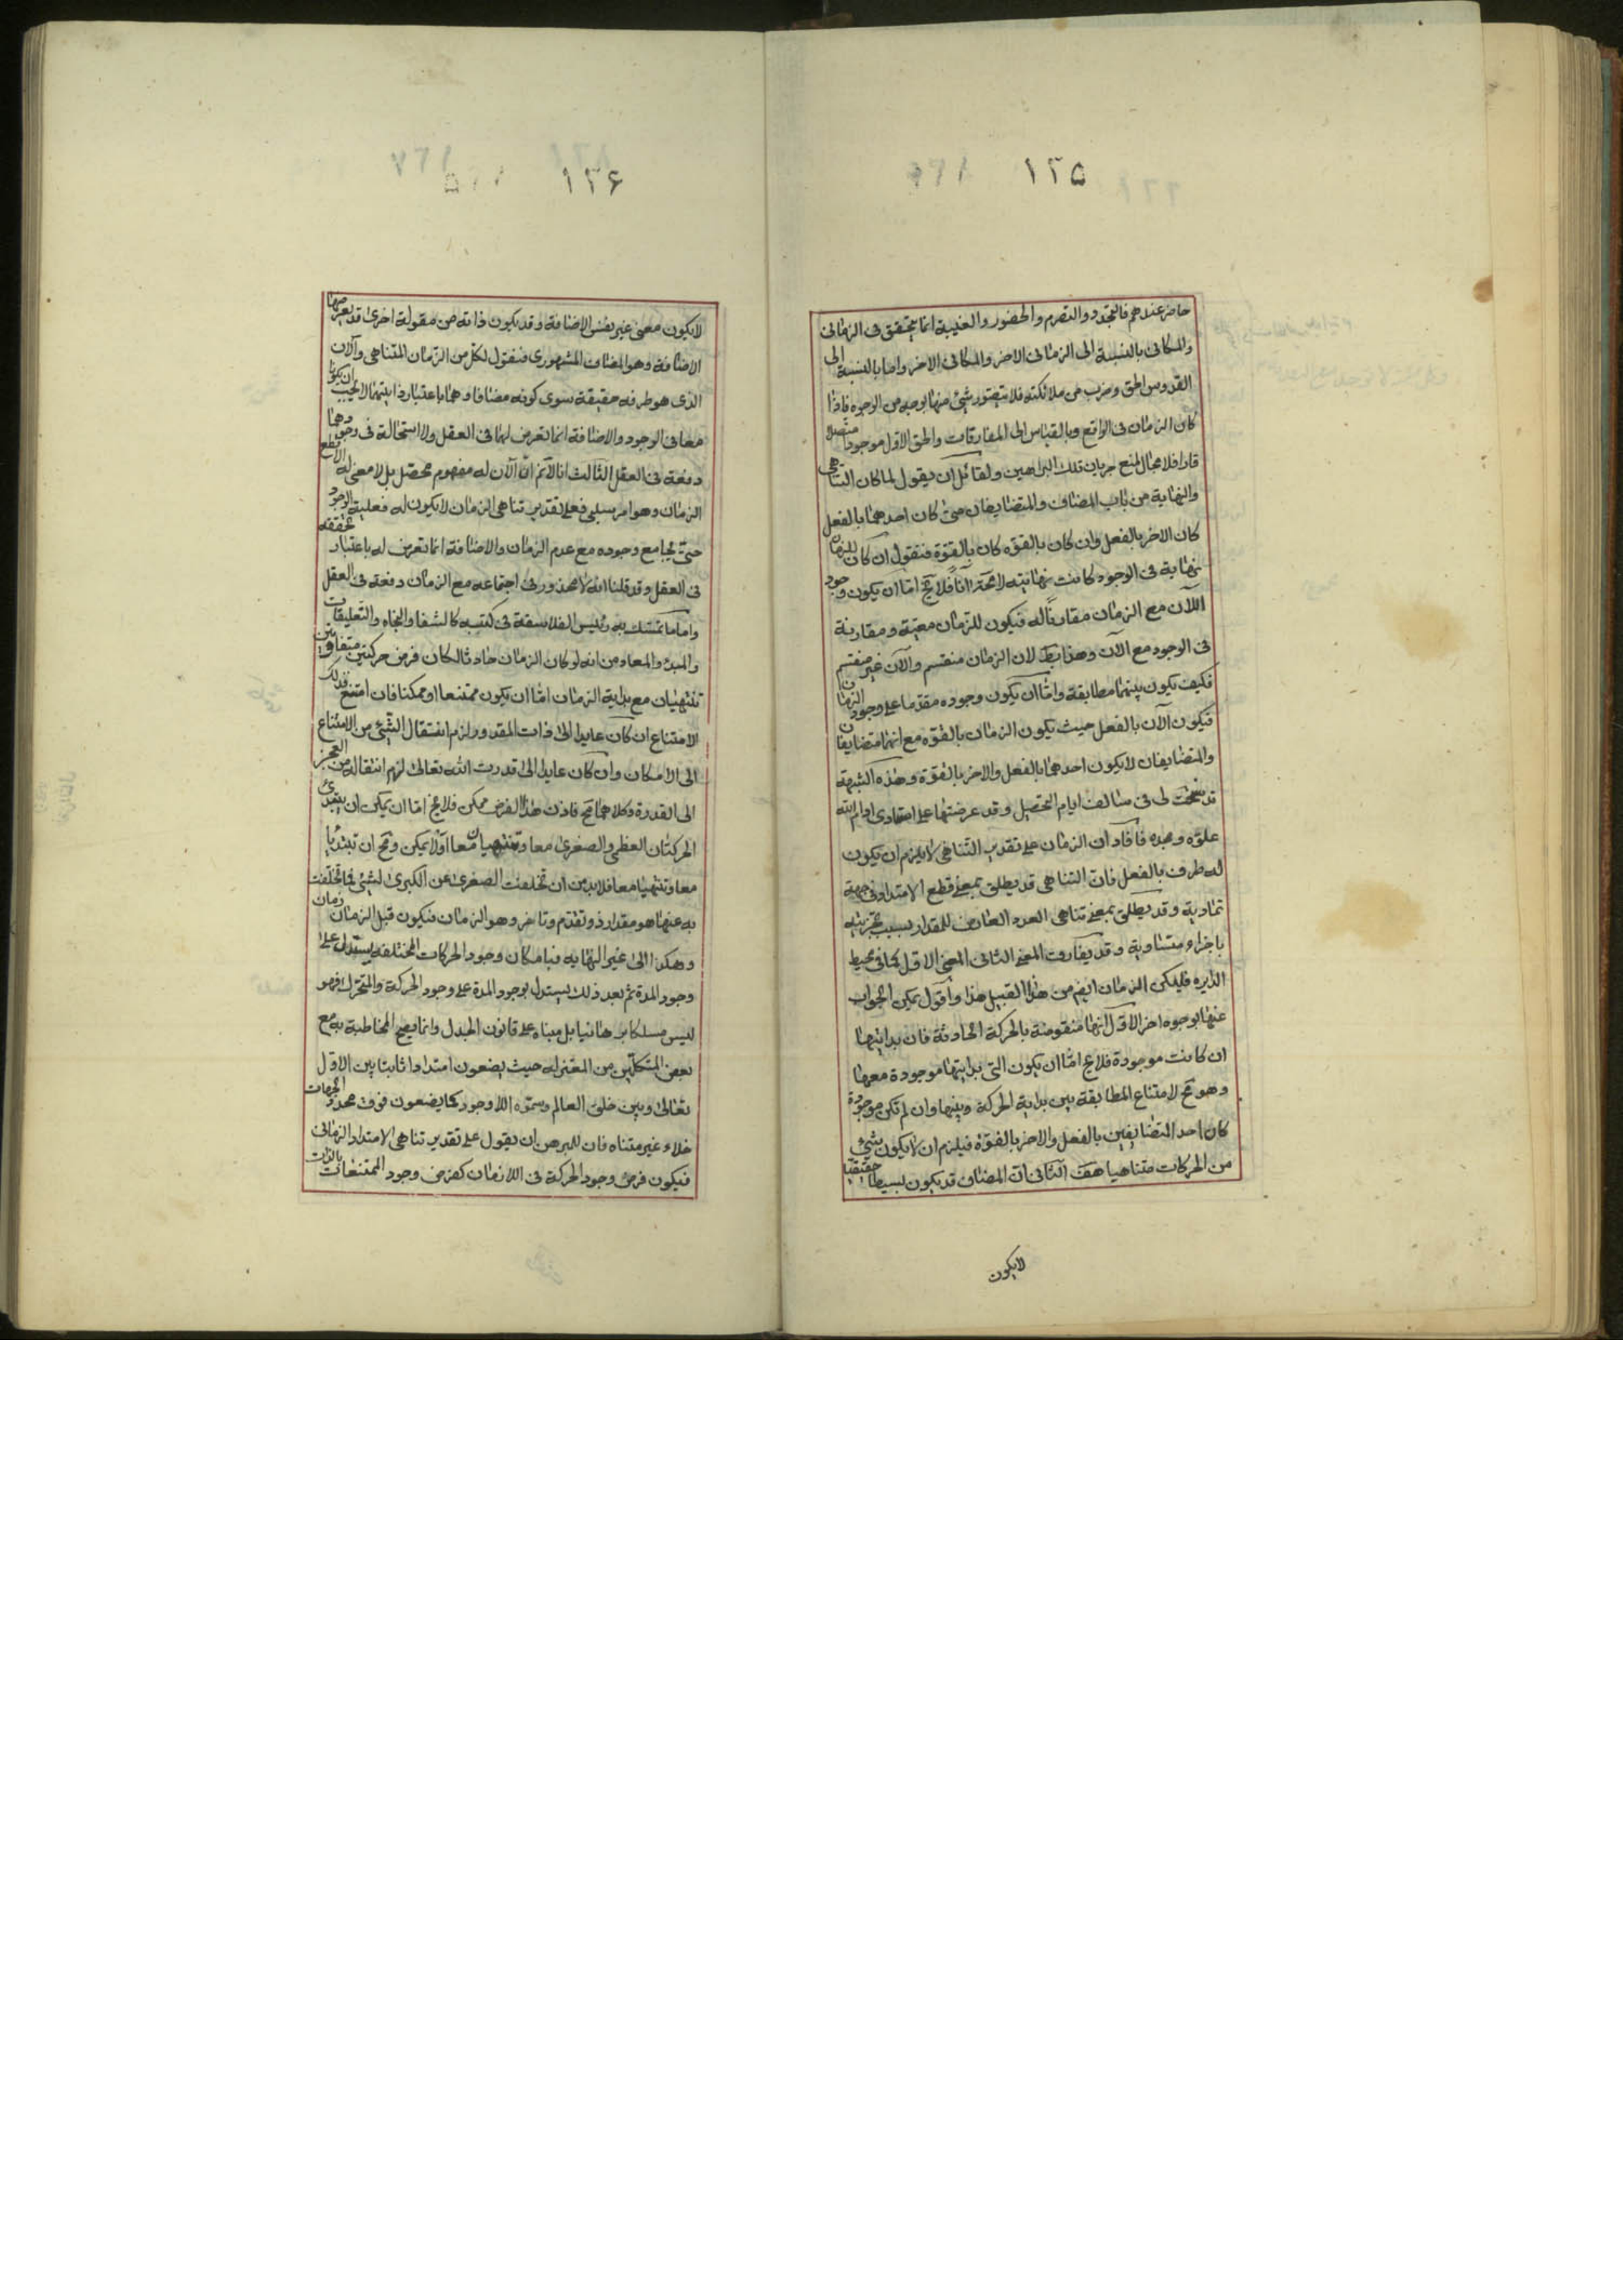 ١٢٥
حاضر عندهم فالتجدد والتصرم والحضور والغيبة انما يتحقق فى الزمانى
والمكانى بالنسبة الى الزمانى الاخر والمكانى الاخر واما بالنسبة الى
القدوس الحق وضرب من ملائكته فلا يتصور شئ منها بوجه من الوجوه فاذا
كان الزمان فى الواقع وبالقياس الى المفارقات والحق الاول موجودا متصلا
قارا فلا مجال لمنع جريان تلك البراهين ولقائل ان يقول لما كان التناهى
والنهاية من باب المضاف والمتضايفان متى كان احدهما بالفعل
كان الاخر بالفعل وان كان بالقوه كان بالقوة فنقول ان كان للزمان
نهاية فى الوجود كانت نهايته لا محة آنا فلا يخ اما ان يكون وجود
الآن مع الزمان مقارنا له فيكون للزمان معية ومقارنة
فى الوجود مع الآن وهذا بط لان الزمان منقسم والآن غير منقسم
فكيف يكون بينهما مطابقة واما ان يكون وجوده مقدما على وجود الزمان
فيكون الآن بالفعل حيث يكون الزمان بالقوه مع انهما متضايفان
والمتضايفان لا يكون احدهما بالفعل والاخر بالقوة وهذه الشبهة
قد سنحت لى فى سالف ايام التحصيل وقد عرضتها على استادى ادام الله
علوه ومجده فافاد ان الزمان على تقدير التناهى لا يلزم ان يكون
له طرف بالفعل فان التناهى قد يطلق بمعنى قطع الامتداد فى جهة
تماديه وقد يطلق بمعنى تناهى العدد العارض للمقدار بسبب تجزيته
باجزاء متساوية وقد يفارق المعنى الثانى المعنى الاول كما فى محيط
الدايره فليكن الزمان ايضا من هذا القبيل هذا واقول يمكن الجواب
عنها بوجوه اخر الاول انها منقوضة بالحركة الحادثة فان بدايتها
ان كانت موجودة فلا يخ اما ان يكون التى بدايتها موجودة معها
وهو مح لامتناع المطابقة بين بداية الحركة وبينها وان لم تكن موجودة
كان احد المتضايفين بالفعل والاخر بالقوة فيلزم ان لا يكون شئ
من الحركات متناهيا هف الثانى ان المضاف قد يكون بسيطا حقيقيا
لايكون
١٢۶
لايكون معنى غير نفس الاضافة وقد يكون ذاته من مقولة اخرى قد يعرضها
الاضافة وهو المضاف المشهورى فنقول لكل من الزمان المتناهى والان
الذى هو طرفه حقيقة سوى كونه مضافا وهما باعتبار ذاتيهما لا يجب ان يكونا
معا فى الوجود والاضافة انما تعرض لهما فى العقل ولا استحالة فى وجودهما
دفعة فى العقل الثالث انا لانم ان الآن له مفهوم محصل بل لا معنى له الا قطع
الزمان وهو امر سلبى فعلى تقدير تناهى الزمان لا يكون له فعلية الوجود
حتى يجامع وجوده مع عدم الزمان والاضافة انما تعرض له باعتبار تحققه
فى العقل وقد قلنا انه لا محذور فى اجتماعه مع الزمان دفعة فى العقل
واما ما تمسك به رئيس الفلاسفة فى كتبه كالشفا والنجاه والتعليقات
والمبدء والمعاد من انه لو كان الزمان حادثا لكان فرض حركتين متفاوتين
تنتهيان مع بداية الزمان اما ان يكون ممتنعا او ممكنا فان امتنع فذلك
الامتناع ان كان عايدا الى ذات المقدور لزم انتقال الشئ من الامتناع
الى الامكان وان كان عايدا الى قدرت الله تعالى لزم انتقاله من العجز
الى القدرة وكلاهما مح فاذن هذا الفرض ممكن فلا يخ اما ان يمكن ان يبتدئ
الحركتان العظمى والصغرى معا وتنتهيان معا اولا يمكن ومح ان تبتديا
معا وتنتهيا معا فلا بد من ان تخلفت الصغرى عن الكبرى لشئ فما تخلفت
به عنها هو مقدار ذو تقدم وتاخر وهو الزمان فيكون قبل الزمان زمان
وهكذا الى غير النهايه فبامكان وجود الحركات المختلفه يستدل على
وجود المدة ثم بعد ذلك يستدل بوجود المدة على وجود الحركة والمتحرك فهو
ليس مسلكا برهانيا بل مبناه على قانون الجدل وانما يصح المخاطبة به مع
بعض المتكلمين من المعتزله حيث يضعون امتدادا ثابتا بين الاول
تعالى وبين خلق العالم وسموه اللاوجود كما يضعون فوق محدد الجهات
خلاء غير متناه فان للمبرهن ان يقول على تقدير تناهى الامتداد الزمانى
فيكون فرض وجود الحركة فى اللازمان كفرض وجود الممتنعات بالذات